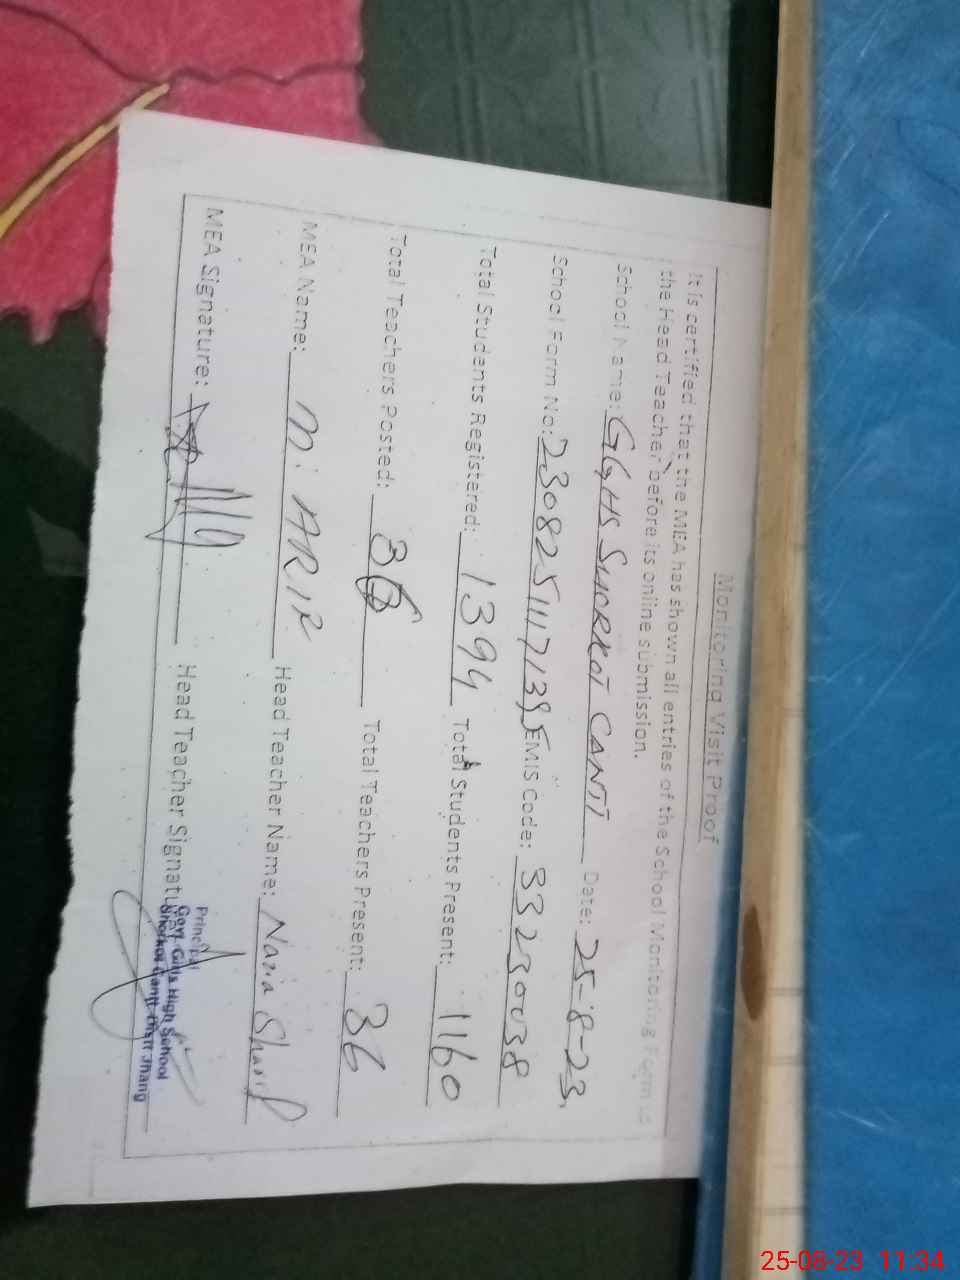 Monitoring Visit Proof
It is certified that the MEA has shown all entries of the School Monitoring Form to
the Head Teacher before its online submission.
School Name: GGHS SHORKOT CANTT Date: 25-8-23
School Form No: EMIS Code: 33230038
Total Students Registered: 1394 Total Students Present: 1160
Total Teachers Posted: 36 Total Teachers Present: 36
MEA Name: M. ARIF Head Teacher Name: Nazia Sharif
MEA Signature: Head Teacher Signature:
Principal
Govt. Girls High School
Shorkot Cantt Distt Jhang
25-08-23 11:34